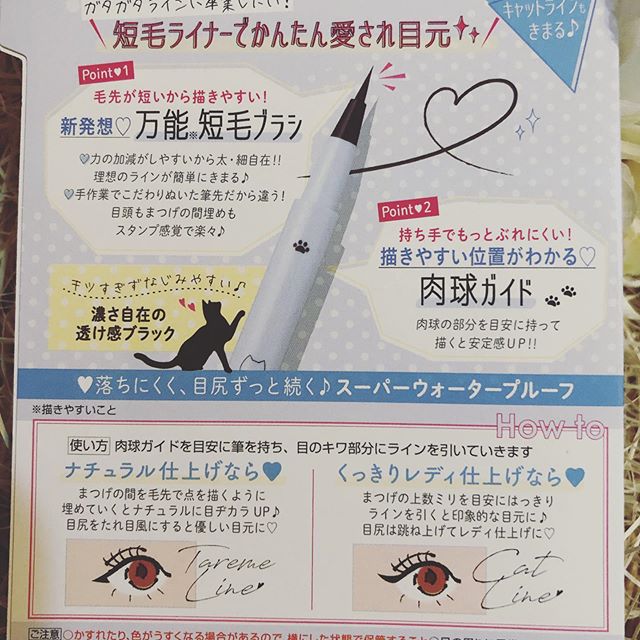 ガタガタラインに卒業したい!
キャットラインも
きまる♪
短毛ライナーでかんたん愛され目元
Point♥1
毛先が短いから描きやすい!
新発想♡万能※短毛ブラシ
♡力の加減がしやすいから太・細自在!!
理想のラインが簡単にきまる♪
♡手作業でこだわりぬいた筆先だから違う!
目頭もまつげの間埋めも
スタンプ感覚で楽々♪
Point♥2
持ち手でもっとぶれにくい!
描きやすい位置がわかる♡
肉球ガイド
肉球の部分を目安に持って
描くと安定感UP!!
モッツすぎずなじみやすい♪
濃さ自在の
透け感ブラック
♥落ちにくく、目尻ずっと続く♪スーパーウォータープルーフ
※描きやすいこと
How to
使い方 肉球ガイドを目安に筆を持ち、目のキワ部分にラインを引いていきます
ナチュラル仕上げなら♥
まつげの間を毛先で点を描くように
埋めていくとナチュラルに目ヂカラUP♪
目尻をたれ目風にすると優しい目元に♡
Tareme
Line♥
くっきりレディ仕上げなら♥
まつげの上数ミリを目安にはっきり
ラインを引くと印象的な目元に♪
目尻は跳ね上げてレディ仕上げに♡
Cat
Line♥
ご注意 ○かすれたり、色がうすくなる場合があるので、横にした状態で保管すること